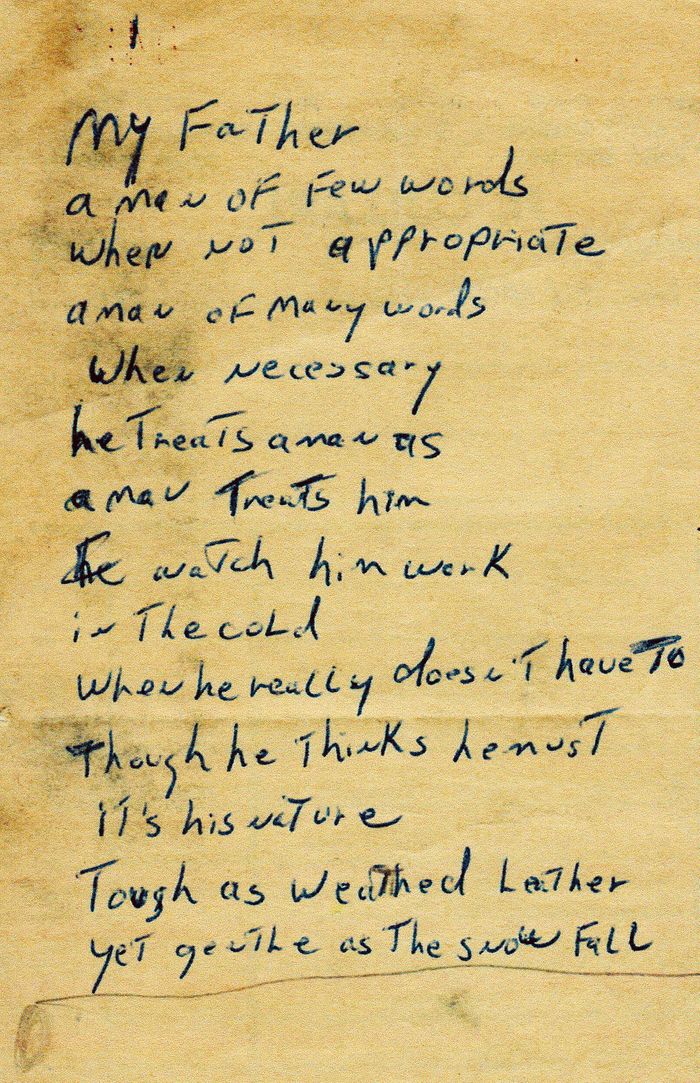 My Father
a man of few words
when not appropriate
a man of many words
when necessary
he treats a man as
a man treats him
watch him work
in the cold
when he really doesn't have to
Though he thinks he must
it's his nature
Tough as weathed leather
yet gentle as the snow fall